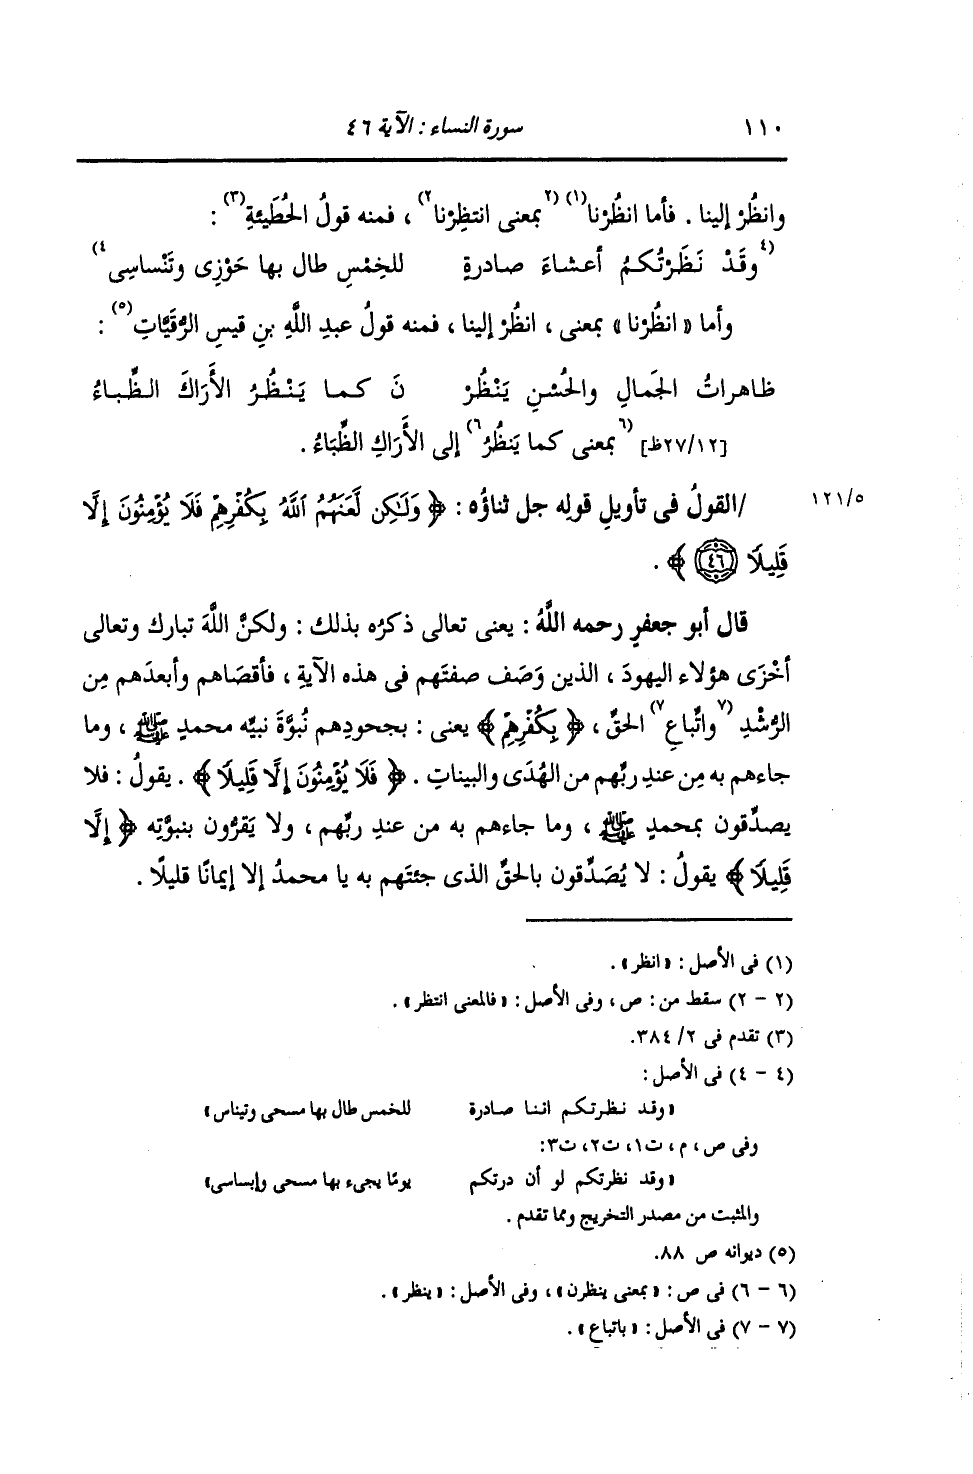 ١١٠ سورة النساء : الآية ٤٦
وانظُرْ إلينا . فأما انظُرْنا(١) (٢بمعنى انتظِرْنا٢) ، فمنه قولُ الحُطَيئةِ(٣) :
(٤وقَدْ نَظَرْتُكمُ أعشاءَ صادرةٍ للخِمْسِ طال بها حَوْزِى وتَنْساسِى٤)
وأما « انظُرْنا » بمعنى ، انظُرْ إلينا ، فمنه قولُ عبدِ اللَّهِ بنِ قيسِ الرُّقَيَّاتِ(٥) :
ظاهراتُ الجَمالِ والحُسْنِ يَنْظُرْ نَ كما يَنْظُرُ الأَرَاكَ الظِّباءُ
[٢٧/١٢ظ] (٦بمعنى كما يَنظُرُ٦) إلى الأَرَاكِ الظِّبَاءُ .
١٢١/٥ /القولُ فى تأويلِ قولِه جل ثناؤُه : ﴿ وَلَٰكِن لَّعَنَهُمُ ٱللَّهُ بِكُفْرِهِمْ فَلَا يُؤْمِنُونَ إِلَّا
قَلِيلًا ٤٦ ﴾ .
قال أبو جعفرٍ رحمه اللَّهُ : يعنى تعالى ذكرُه بذلك : ولكنَّ اللَّهَ تبارك وتعالى
أخْزَى هؤلاء اليهودَ ، الذين وَصَف صفتَهم فى هذه الآيةِ ، فأقصَاهم وأبعدَهم مِن
الرُّشْدِ (٧واتِّباعِ٧) الحقِّ ، ﴿ بِكُفْرِهِمْ ﴾ يعنى : بجحودِهم نُبوَّةَ نبيِّه محمدٍ ﷺ ، وما
جاءهم به مِن عندِ ربِّهم من الهُدَى والبيناتِ . ﴿ فَلَا يُؤْمِنُونَ إِلَّا قَلِيلًا ﴾ . يقولُ : فلا
يصدِّقون بمحمدٍ ﷺ ، وما جاءهم به من عندِ ربِّهم ، ولا يَقرُّون بنبوَّتِه ﴿ إِلَّا
قَلِيلًا ﴾ يقولُ : لا يُصَدِّقون بالحقِّ الذى جئتَهم به يا محمدُ إلا إيمانًا قليلًا .
(١) فى الأصل : « انظر » .
(٢ - ٢) سقط من : ص ، وفى الأصل : « فالمعنى انتظر » .
(٣) تقدم فى ٢/ ٣٨٤.
(٤ - ٤) فى الأصل :
« وقد نظرتكم اننا صادرة للخمس طال بها مسحى وتيناس »
وفى ص ، م ، ت١، ت٢، ت٣:
« وقد نظرتكم لو أن درتكم يومًا يجىء بها مسحى وإبساسى »
والمثبت من مصدر التخريج ومما تقدم .
(٥) ديوانه ص ٨٨.
(٦ - ٦) فى ص : « بمعنى ينظرن » ، وفى الأصل : « ينظر » .
(٧ - ٧) فى الأصل : « باتباع » .